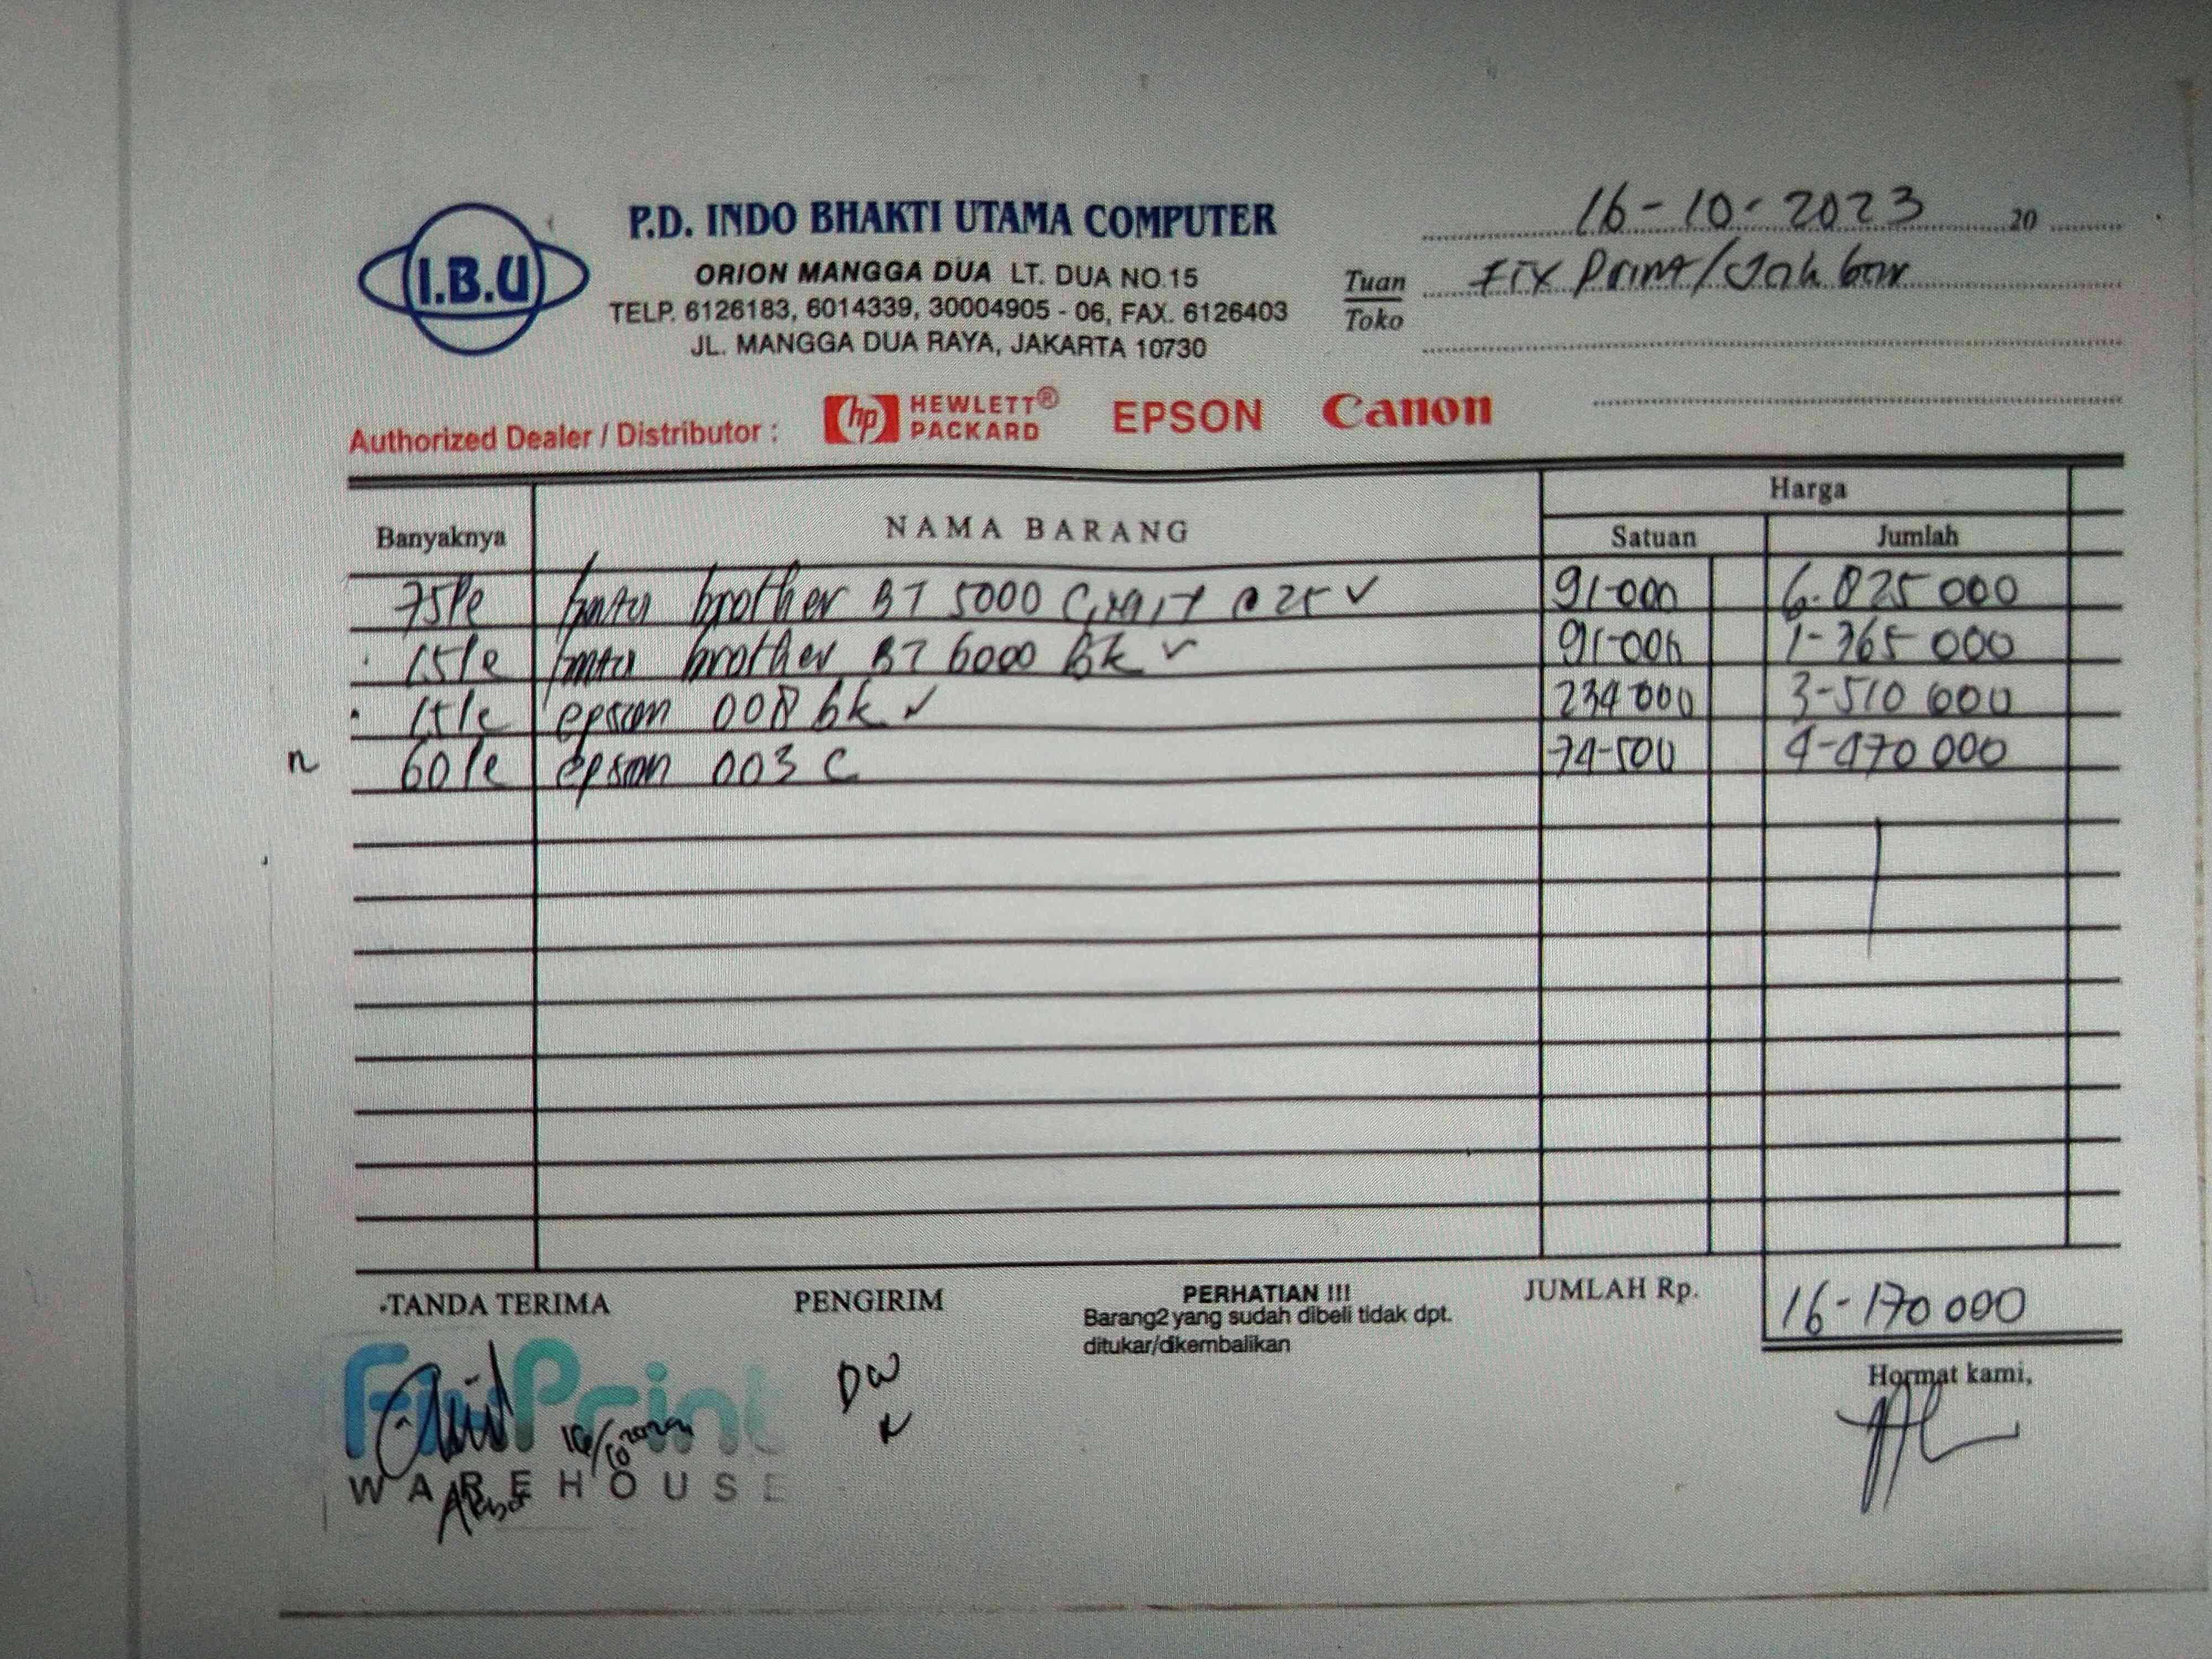 I.B.U
P.D. INDO BHAKTI UTAMA COMPUTER
ORION MANGGA DUA LT. DUA NO.15
TELP. 6126183, 6014339, 30004905 - 06, FAX. 6126403
JL. MANGGA DUA RAYA, JAKARTA 10730
16-10-2023 20
Tuan Fix Print/Jak bar
Toko
Authorized Dealer / Distributor : hp HEWLETT® PACKARD EPSON Canon
Banyaknya NAMA BARANG Harga
Satuan Jumlah
75 brother BT 5000 @ 25 ✓ 91-000 6.825 000
15 brother BT 6000 Bk ✓ 91-000 1-365 000
15 epson 008 bk ✓ 234 000 3-510 000
60 epson 003 C 74-500 4-470 000
TANDA TERIMA PENGIRIM PERHATIAN !!! JUMLAH Rp. 16-170 000
Barang2 yang sudah dibeli tidak dpt.
ditukar/dikembalikan
Hormat kami,
FixPrint
WAREHOUSE
DW